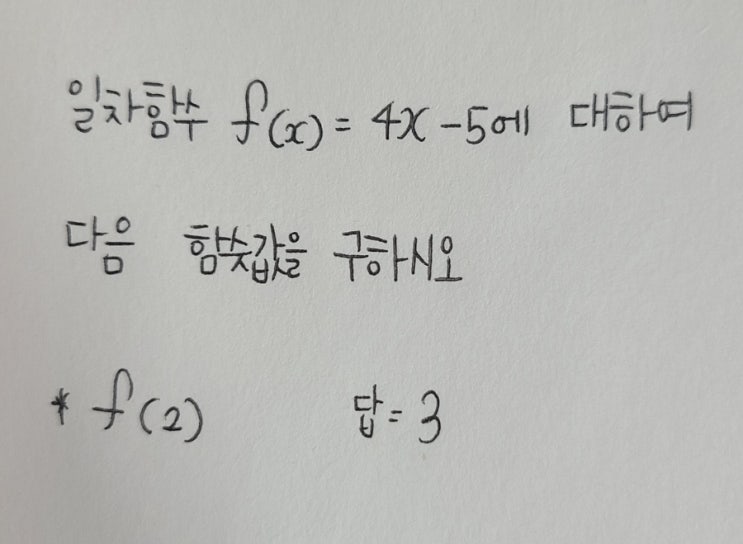 일차함수 f(x) = 4x - 5에 대하여
다음 함숫값을 구하시오
* f(2) 답 = 3